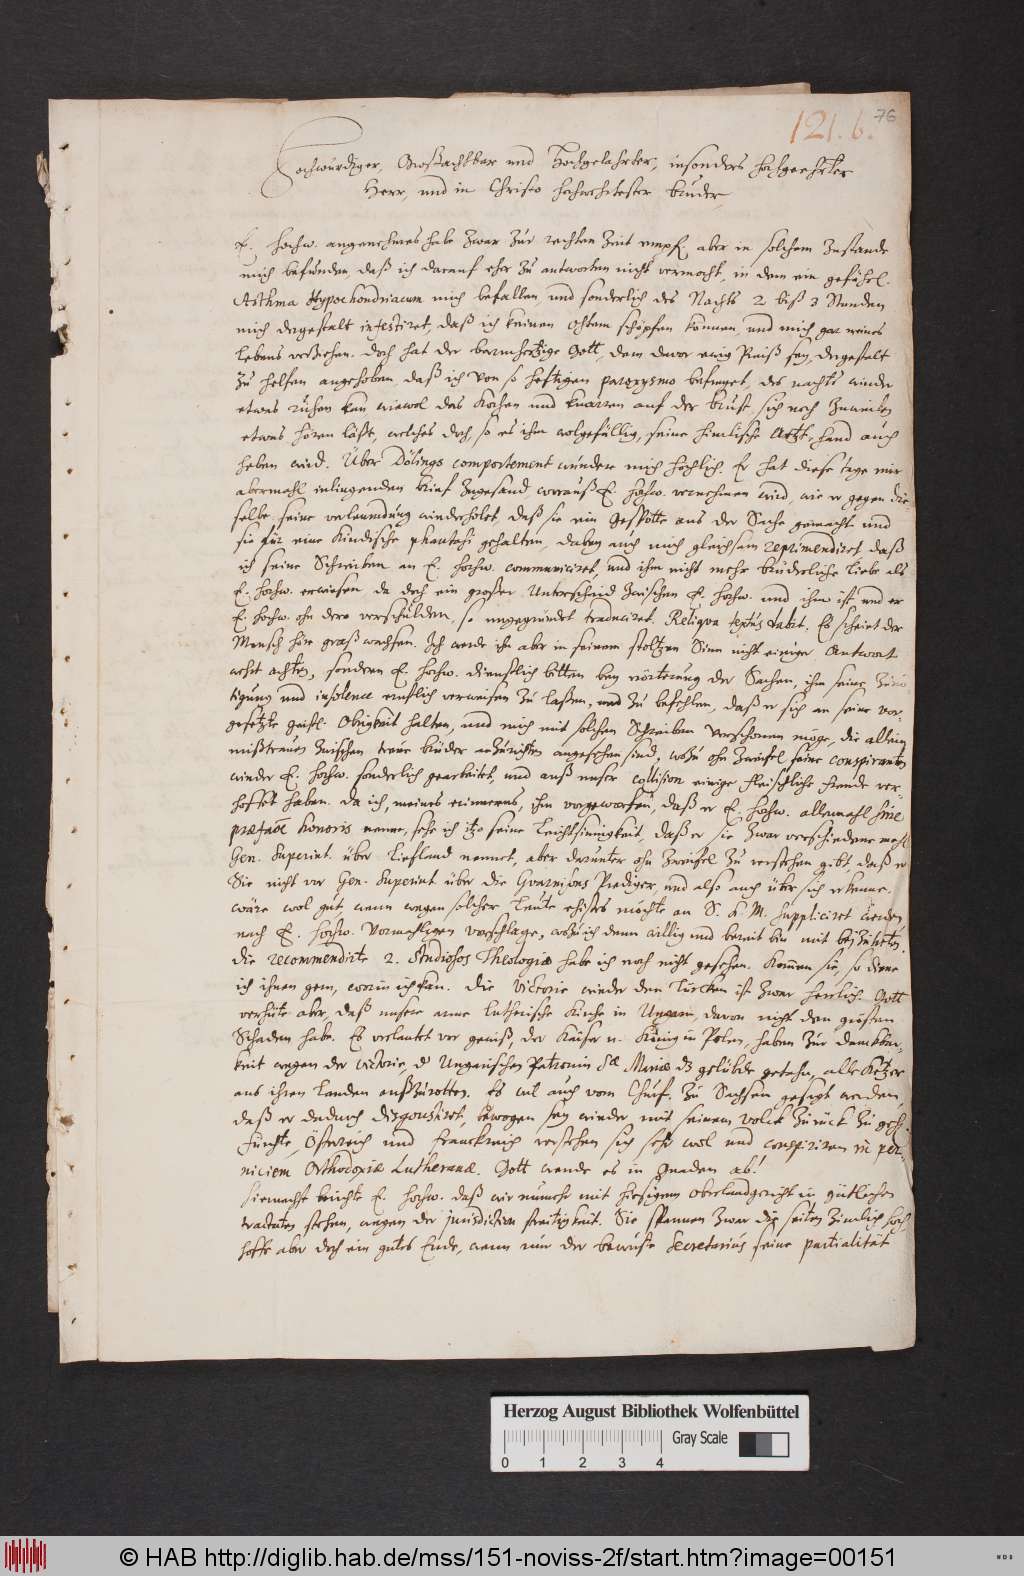 121. 6.
76
Hochwürdiger, Großachtbar und Hochgelahrter, insonders hochgeehrter
Herr, und in Christo hochwehrtester bruder
E. Hochw. angenehmes habe zwar zur rechten Zeit empf. aber in solchem Zustande
mich befunden daß ich darauf eher zu antworten nicht vermocht, in dem ein gefährl.
Asthma Hypochondriacum mich befallen und sonderlich des Nachts 2 biß 3 Stunden
mich dergestalt infestiret, daß ich keinen Athem schöpfen können, und mich gar meines
lebens verziehen. Doch hat der barmhertzige Gott, dem davor ewig Preiß sey, dergestalt
zu helfen angehoben, daß ich von so heftigen paroxysmo befreyet, des nachts wieder
etwas ruhen kan wiewol das Kochen und knarren auf der brust sich noch zuweilen
etwas hören läßt, welches doch, so es ihm wolgefällig, seine himlische Artzt-hand auch
heben wird. Über Dölings comportement wundere mich höchlich. Er hat diese tage mir
abermahl inliegenden brief zugesand, worauß E. Hochw. vernehmen wird, wie er gegen die
selbe seine verleumdung wiederholet, daß sie ein Gespötte aus der Sache gemacht und
sie für eine Kindische phantasi gehalten, dabey auch mich gleichsam reprimendiret daß
ich seine Schreiben an E. Hochw. communiciret, und ihm nicht mehr brüderliche liebe als
E. Hochw. erwiesen da doch ein großer Unterscheid zwischen E. Hochw. und ihm ist, und er
E. Hochw. ohn dero verschulden, so ungegründet traduciret. Reliqua textus habet. Es scheint der
Mensch höre graß wachsen. Ich werde ihn aber in seinem stoltzen Sinn nicht einiger Antwort
wehrt achten, sondern E. Hochw. dienstlich bitten bey erörterung der Sachen, ihm seine
tigung und insolence ernstlich verweisen zu laßen, und zu befehlen, daß er sich an seine vor-
gesetzte geistl. Obrigkeit halten, und mich mit solchen Schreiben verschonen möge, die allein
mißtrauen zwischen treue brüder anzurichten angesehen sind, wozu ohn Zweifel seine conspiranten
wieder E. Hochw. sonderlich gearbeitet, und auß unser collision einige fleischliche freude ver-
hoffet haben. Da ich, meines erinnerens, ihm vorgeworfen, daß er E. Hochw. allemahl sine
præfatōe honoris nenne, sehe ich itzo seine leichtsinnigkeit, daß er sie zwar verschiedene mahl
Gen. Superint. über Liefland nennet, aber darunter ohn Zweifel zu verstehen gibt, daß er
Sie nicht vor Gen. Superint. über die Guarnisons Prediger, und also auch über sich erkenne.
wäre wol gut, wenn wegen solcher leute ehistes möchte an S. K. M. suppliciret werden
nach E. Hochw. vormahligen vorschlage, wozu ich denn willig und bereit bin mit beyzutreten.
Die recommendirte 2. Studiosos Theologiæ habe ich noch nicht gesehen. Kommen sie, so diene
ich ihnen gern, worin ich kan. Die Victorie wieder den Türcken ist zwar herrlich. Gott
verhüte aber, daß unsere arme lutherische Kirche in Ungarn, davon nicht den grösten
Schaden habe. Es verlautet vor gewiß, der Käiser u. König in Polen, haben zur danckbar-
keit wegen der victorie, d Ungarischen Patronin S.æ Mariæ dz gelübde gethan, alle Ketzer
aus ihren landen außzurotten. Es wil auch vom Churf. zu Sachsen gesagt werden,
daß er dadurch disgoustiret, bewogen sey wieder mit seinem volck zurück zu gehen.
fürchte, Österreich und Franckreich verstehen sich sehr wol und conspiriren in per-
niciem Orthodoxiæ Lutheranæ. Gott wende es in gnaden ab!
Hiernechst berichte E. Hochw. daß wir nunmehr mit hiesigem Oberlandgericht in gütlichen
tractaten stehen, wegen der jurisdiction streitigkeit. Sie spannen zwar die seiten zimlich hoch,
hoffe aber doch ein gutes Ende, wenn nur der bewuste Secretarius seine partialität
Herzog August Bibliothek Wolfenbüttel
Gray Scale
0 1 2 3 4
© HAB http://diglib.hab.de/mss/151-noviss-2f/start.htm?image=00151